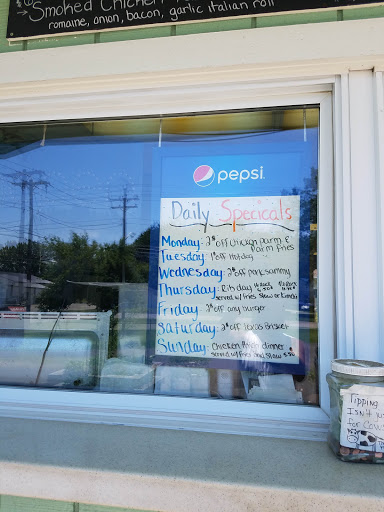 Smoked Chicken
romaine, onion, bacon, garlic italian roll
pepsi
Daily Specicals
Monday: 2⁰⁰ off Chicken parm &
Parm fries
Tuesday: 1⁰⁰ off Hotdog
Wednesday: 2⁰⁰ off pork sammy
Thursday: Ribs day
served w/ fries slaw or
Friday: 2⁰⁰ off any burger
Saturday: 2⁰⁰ off Texas Brisket
Sunday: Chicken dinner
served w/ fries and slaw
Tipping
Isn't
for Cows